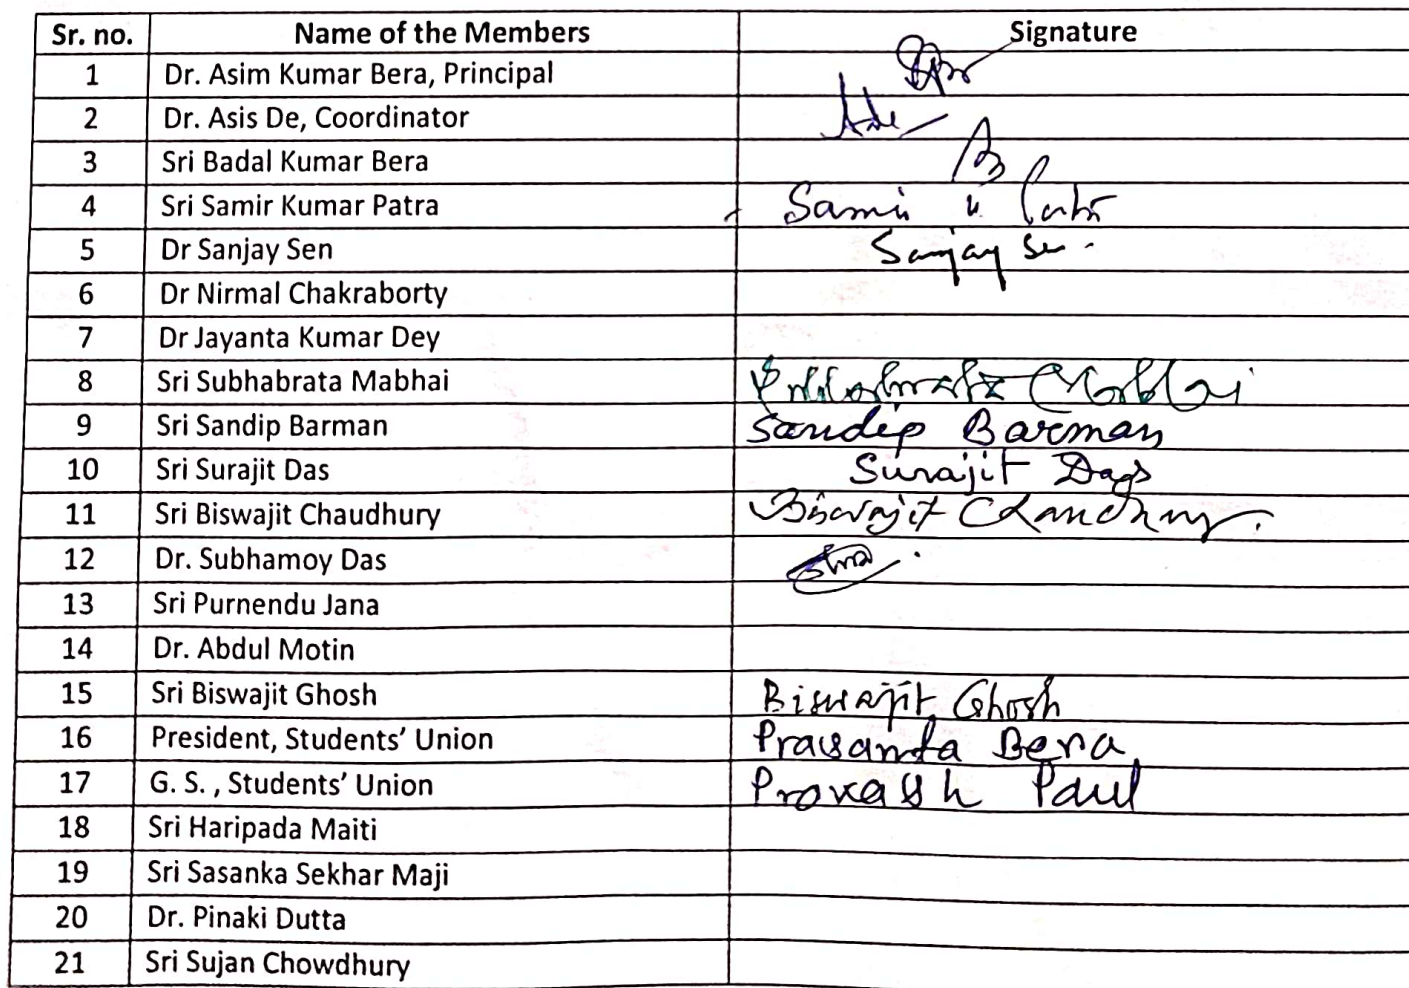 Sr. no. Name of the Members Signature
1 Dr. Asim Kumar Bera, Principal
2 Dr. Asis De, Coordinator
3 Sri Badal Kumar Bera
4 Sri Samir Kumar Patra Samir K Patra
5 Dr Sanjay Sen Sanjay Sen.
6 Dr Nirmal Chakraborty
7 Dr Jayanta Kumar Dey
8 Sri Subhabrata Mabhai Subhabrata Mabhai
9 Sri Sandip Barman Sandip Barman
10 Sri Surajit Das Surajit Das
11 Sri Biswajit Chaudhury Biswajit Chaudhury.
12 Dr. Subhamoy Das
13 Sri Purnendu Jana
14 Dr. Abdul Motin
15 Sri Biswajit Ghosh Biswajit Ghosh
16 President, Students’ Union Prasanta Bera
17 G. S. , Students’ Union Prokash Paul
18 Sri Haripada Maiti
19 Sri Sasanka Sekhar Maji
20 Dr. Pinaki Dutta
21 Sri Sujan Chowdhury